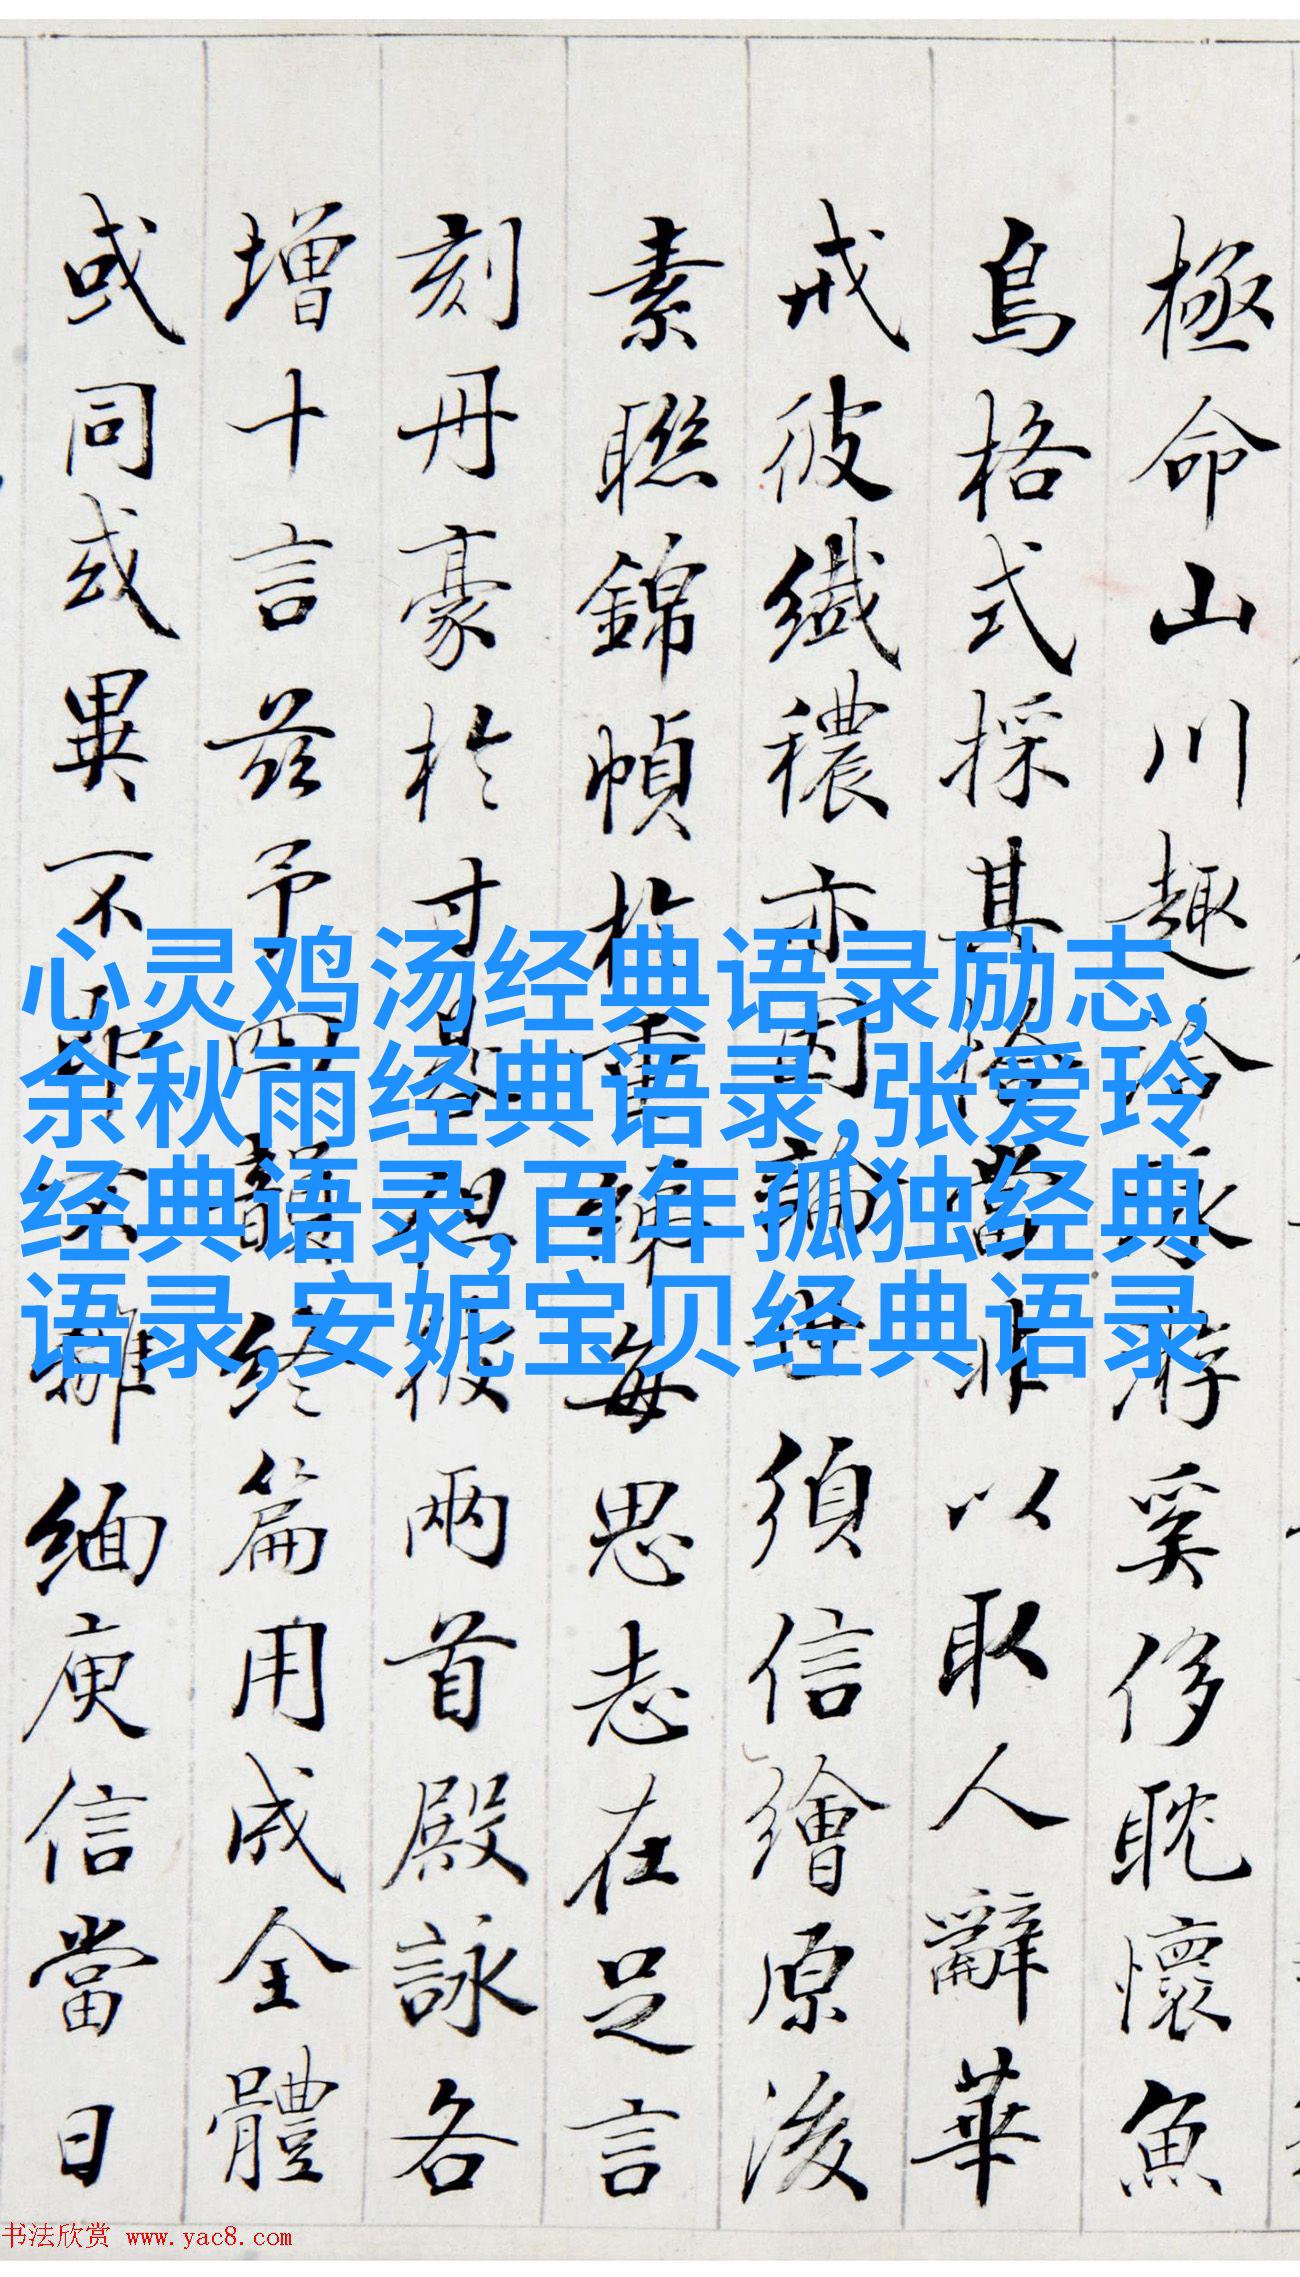 極命山川趣泠泳游奚侈耽懷魚
鳥格式採其
當非以取人辭華
戒彼纖穠亦因
須信繪原後
素聯錦幀
每思志在足言
刻丹豪於寸
彼兩首殿詠各
增十言茲予四韻終篇用成全體
或同或異不
緬庾信當日
心灵鸡汤经典语录励志,
余秋雨经典语录,张爱玲
经典语录,百年孤独经典
语录,安妮宝贝经典语录
书法欣赏 www.yac8.com